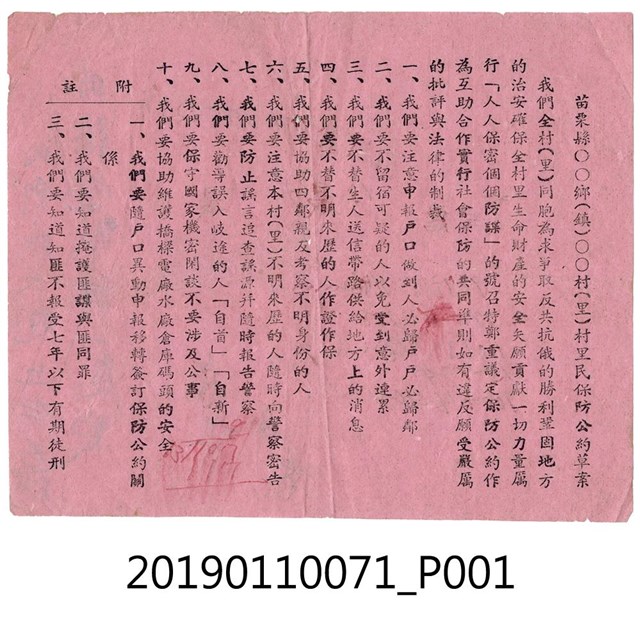 苗栗縣○○鄉(鎮)○○村(里)村里民保防公約草案
我們全村(里)同胞為求爭取反共抗俄的勝利鞏固地方
的治安確保全村里生命財產的安全矢願貢獻一切力量厲
行「人人保密個個防諜」的號召特鄭重議定保防公約作
為互助合作實行社會保防的共同準則如有違反願受嚴厲
的批評與法律的制裁
一、我們要注意申報戶口做到人必歸戶戶必歸鄰
二、我們要不留宿可疑的人以免受到意外連累
三、我們要不替生人送信帶路供給地方上的消息
四、我們要不替不明來歷的人作證作保
五、我們要協助四鄰親友考察不明身份的人
六、我們要注意本村(里)不明來歷的人隨時向警察密告
七、我們要防止謠言追查謠源幷隨時報告警察
八、我們要勸導誤入歧途的人「自首」「自新」
九、我們要保守國家機密閑談不要涉及公事
十、我們要協助維護橋樑電廠水廠倉庫碼頭的安全
附註
一、我們要隨戶口異動申報移轉簽訂保防公約關
係
二、我們要知道掩護匪諜與匪同罪
三、我們要知道知匪不報受七年以下有期徒刑
20190110071_P001